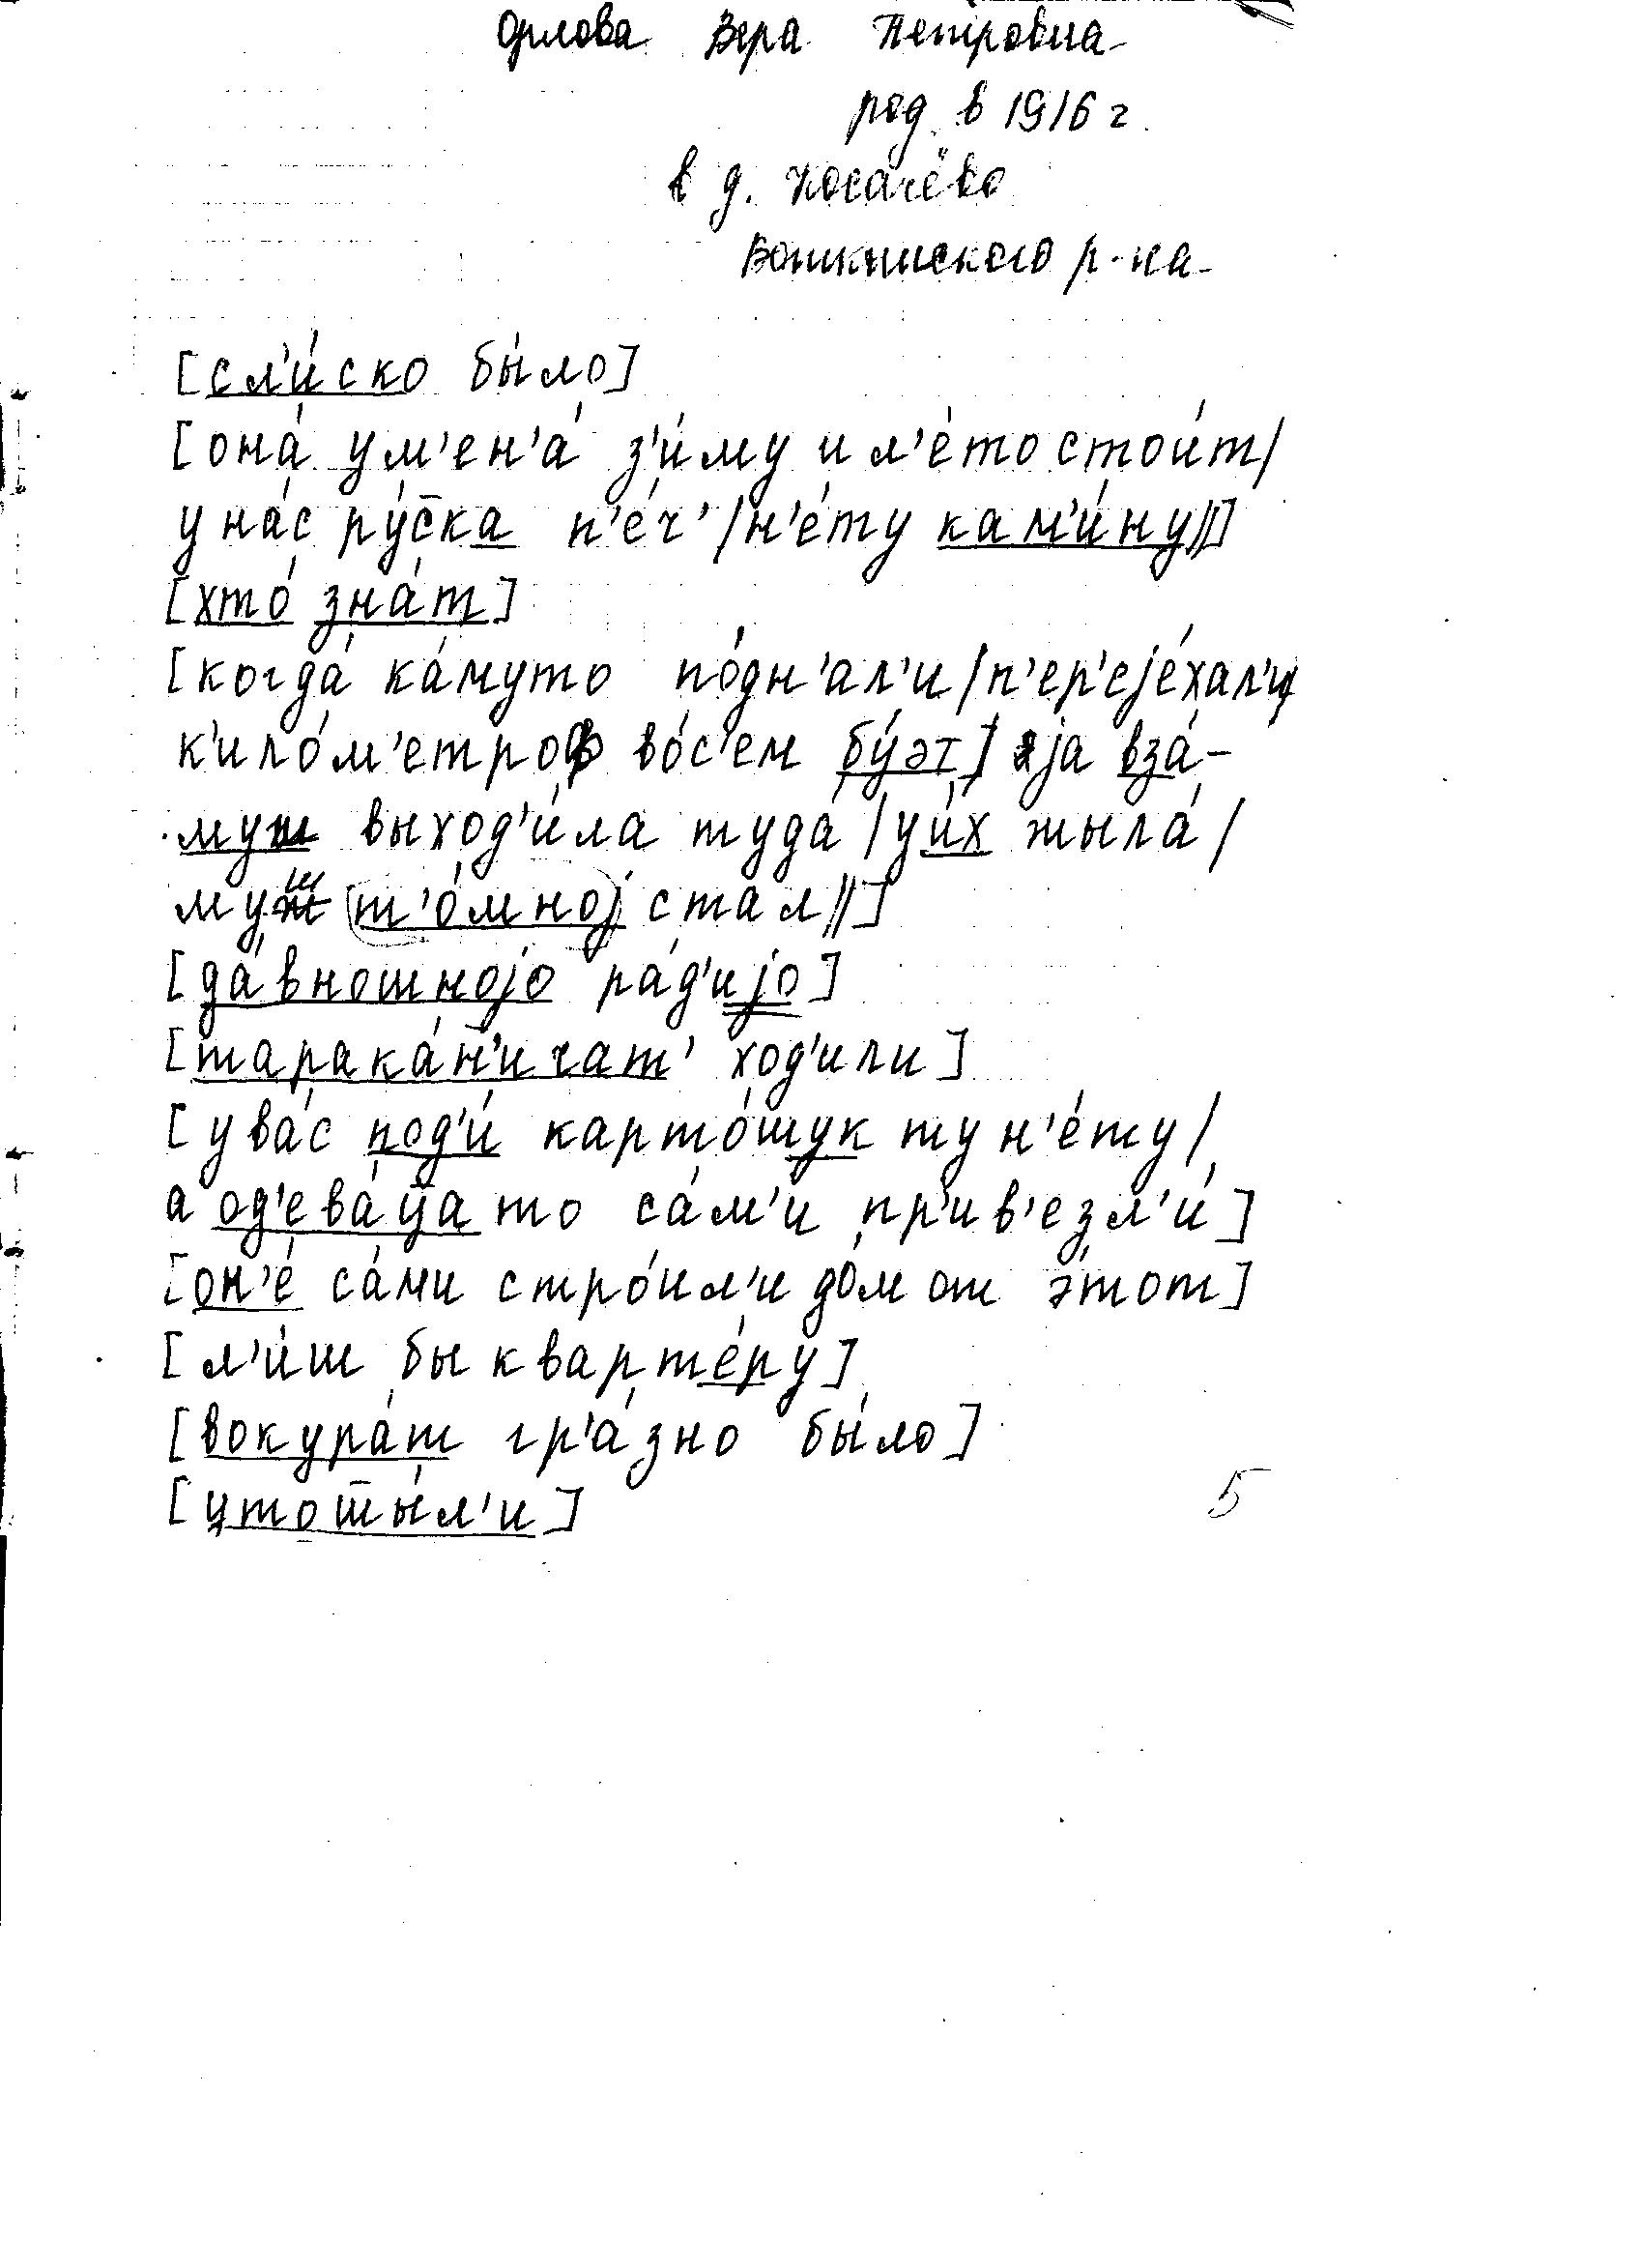 Орлова Вера Петровна
род. в 1916 г.
в д. Косачёво
Воткинского р-на
[сл'и́ско бы́ло]
[она́ ум'ен'а́ з'и́му и л'е́то стои́т/
у на́с ру́с̄ка п'е́ч'/н'е́ту кам'и́ну//]
[хто́ зна́т]
[когда́ ка́муто по́дн'ал'и/п'ер'еjе́хал'и
к'ило́м'етроф во́с'ем бу́эт/ jа вза́-
муш выход'и́ла туда́/уи́х жыла́/
муш т'о́мноj стал//]
[да́вношноjо ра́д'иjо]
[тарака́н'ичат' ход'или]
[ува́с под'и́ карто́шук ту н'е́ту/
а од'ева́ц̄а то са́м'и пр'ив'езл'и́]
[он'е́ са́ми стро́ил'и до́м от э́тот]
[л'и́ш бы кварте́ру]
[вокура́т гр'а́зно бы́ло]
[утот̄ы́л'и]
5